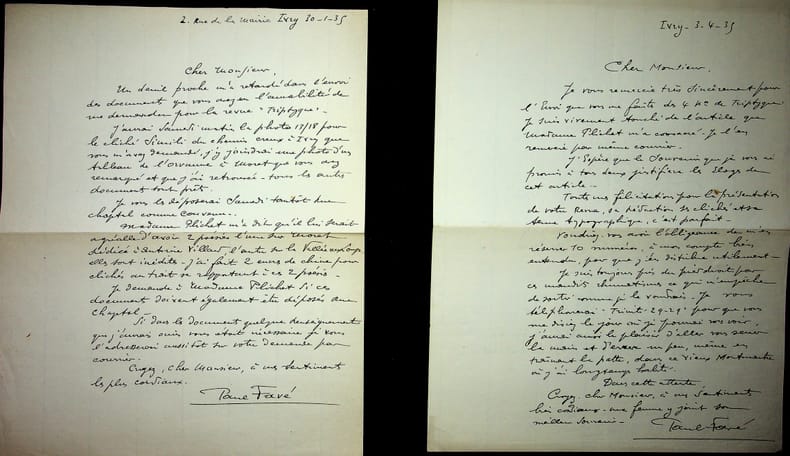 2. Rue de la Mairie Ivry 30-1-35
Cher Monsieur,
Un deuil proche m'a retardé dans l'envoi
des document que vous avez eu l'amabilité de
me demander pour la revue "Triptyque".
J'aurai Samedi matin la photo 13/18 pour
le cliché Simili du chemin creux à Ivry que
vous m'avez demandé, j'y joindrai une photo d'un
tableau de l'Orvanne à Moret que vous avez
remarqué et que j'ai retrouvé - tous les autres
document sont prêts.
Je vous les déposerai Samedi tantôt rue
Chaptal comme convenu.
Madame Plichet m'a dit qu'il lui serait
agréable d'avoir 2 poésies l'une sur Moret
dédiée à Antoine Villard l'autre sur la Vallée aux Loups
elles sont inédites - j'ai fait 2 encres de chine pour
clichés au trait se rapportant à ces 2 poésies -
Je demande à Madame Plichet si ces
document doivent également être déposés rue
Chaptal -
Si dans les document quelque renseignement
que j'aurais omis vous était nécessaire je vous
l'adresserai aussitôt sur votre demande par
courrier.
Croyez, Cher Monsieur, à mes sentiment
les plus cordiaux.
Paul Favé
Ivry - 3-4-35
Cher Monsieur,
Je vous remercie très sincèrement pour
l'Envoi que vous me faites de 4 Nos de Triptyque
Je suis vivement touché de l'article que
Madame Plichet m'a consacré. Je l'en
remercie par même courrier.
J'Espère que le Souvenir que je vous ai
promis à tous deux justifiera les Eloges de
cet article -
Toutes mes félicitations pour la présentation
de votre Revue, sa rédaction ses clichés et sa
tenue typographique, c'est parfait -
Voudriez vous avoir l'obligeance de m'en
réserver 10 numéros, à mon compte bien
entendu, pour que j'en distribue utilement -
Je suis toujours pris du pied droit par
ces maudits rhumatismes ce qui m'empêche
de sortir comme je le voudrais - Je vous
téléphonerai - Trinité - 29-29 pour que vous
me disiez le jour où je pourrai vous voir,
j'aurai ainsi le plaisir d'aller vous serrer
la main et d'errer un peu, même en
traînant la patte, dans ce vieux Montmartre
où j'ai longtemps habité.
Dans cette attente,
Croyez, cher Monsieur, à mes Sentiments
bien cordiaux - ma femme y joint son
meilleur souvenir -
Paul Favé